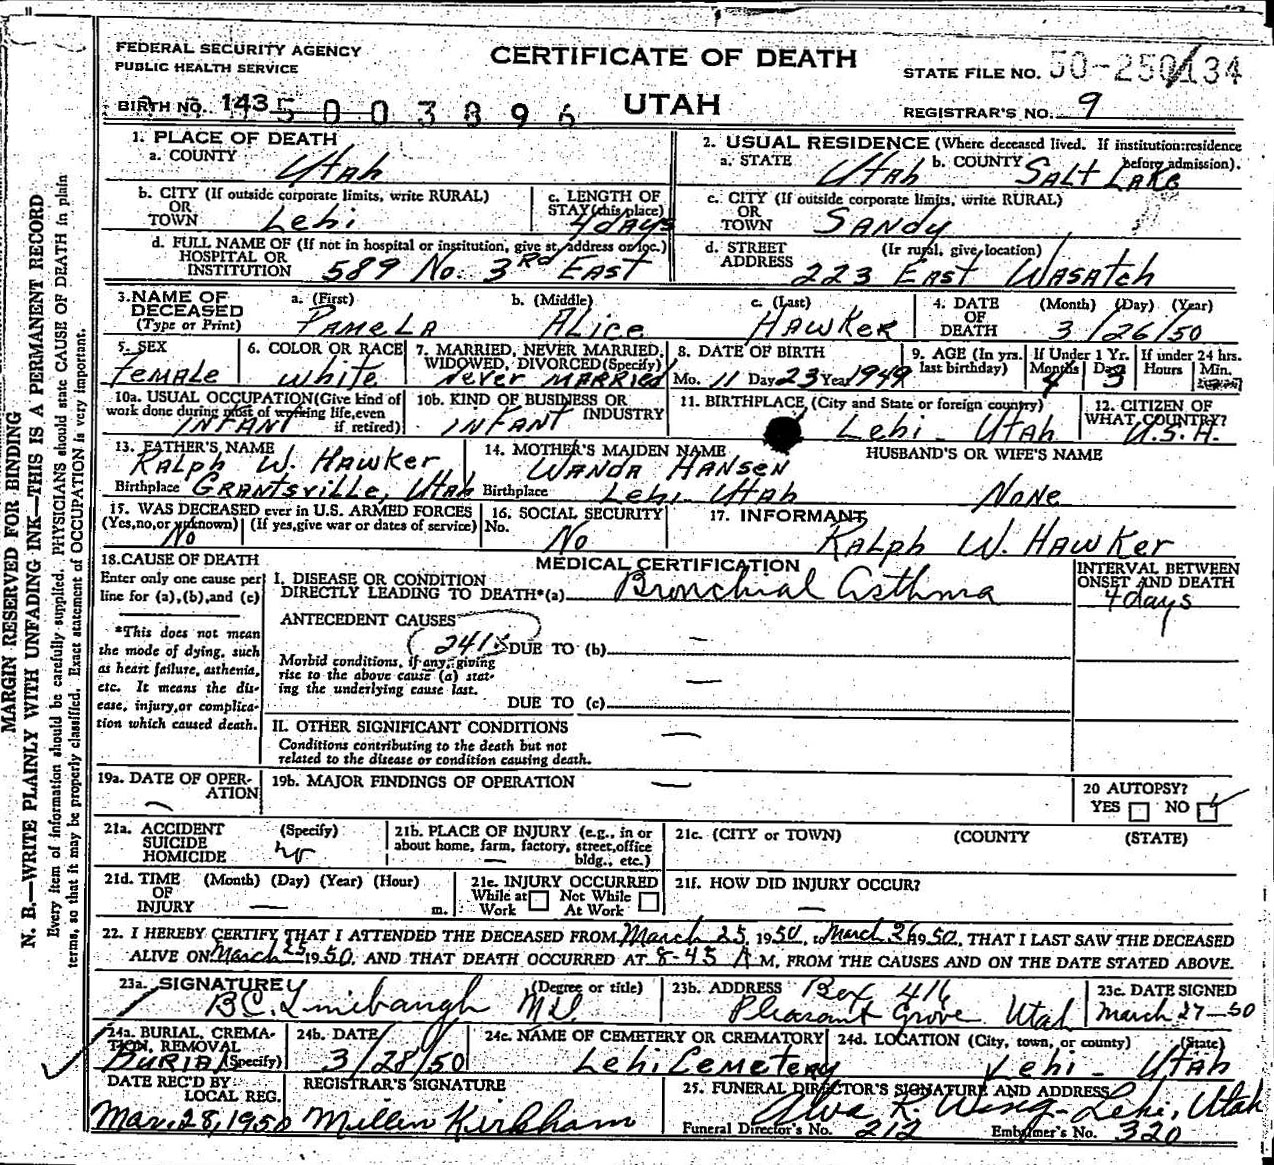 MARGIN RESERVED FOR BINDING
N. B.—WRITE PLAINLY WITH UNFADING INK—THIS IS A PERMANENT RECORD
Every item of information should be carefully supplied. PHYSICIANS should state CAUSE OF DEATH in plain
terms, so that it may be properly classified. Exact statement of OCCUPATION is very important.
FEDERAL SECURITY AGENCY
PUBLIC HEALTH SERVICE
CERTIFICATE OF DEATH
UTAH
STATE FILE NO. 50-250134
BIRTH NO. 143 5003896
REGISTRAR'S NO. 9
1. PLACE OF DEATH
a. COUNTY Utah
2. USUAL RESIDENCE (Where deceased lived. If institution:residence before admission).
a. STATE Utah b. COUNTY SALT LAKE
b. CITY (If outside corporate limits, write RURAL)
OR
TOWN Lehi
c. LENGTH OF
STAY (this place)
4 days
c. CITY (If outside corporate limits, write RURAL)
OR
TOWN SANdy
d. FULL NAME OF (If not in hospital or institution, give st. address or loc.)
HOSPITAL OR
INSTITUTION 589 No. 3rd EAST
d. STREET (Ir rural, give location)
ADDRESS 223 EAST WASATch
3. NAME OF
DECEASED
(Type or Print)
a. (First) PAMELA
b. (Middle) ALice
c. (Last) HAWKER
4. DATE (Month) (Day) (Year)
OF
DEATH 3/26/50
5. SEX
FEMALE
6. COLOR OR RACE
White
7. MARRIED, NEVER MARRIED,
WIDOWED, DIVORCED(Specify)
Never MARRied
8. DATE OF BIRTH
Mo. 11 Day 23 Year 1949
9. AGE (In yrs.
last birthday)
If Under 1 Yr.
Months 4 Days 3
If under 24 hrs.
Hours Min.
10a. USUAL OCCUPATION(Give kind of
work done during most of working life,even
if retired)
INFANT
10b. KIND OF BUSINESS OR
INDUSTRY
INFANT
11. BIRTHPLACE (City and State or foreign country)
Lehi - Utah
12. CITIZEN OF
WHAT COUNTRY?
U.S.A.
13. FATHER'S NAME
RALph W. HAWKER
Birthplace GRANTSville, Utah
14. MOTHER'S MAIDEN NAME
WANDA HANSEN
Birthplace Lehi - Utah
HUSBAND'S OR WIFE'S NAME
NONE
15. WAS DECEASED ever in U.S. ARMED FORCES
(Yes,no,or unknown) (If yes,give war or dates of service)
No
16. SOCIAL SECURITY
No.
No
17. INFORMANT
RALph W. HAWKER
18. CAUSE OF DEATH
Enter only one cause per
line for (a),(b),and (c)
*This does not mean
the mode of dying, such
as heart failure, asthenia,
etc. It means the dis-
ease, injury,or complica-
tion which caused death.
MEDICAL CERTIFICATION
I. DISEASE OR CONDITION
DIRECTLY LEADING TO DEATH*(a) Bronchial Asthma
INTERVAL BETWEEN
ONSET AND DEATH
4 days
ANTECEDENT CAUSES
241X DUE TO (b) —
Morbid conditions, if any, giving
rise to the above cause (a) stat-
ing the underlying cause last.
—
DUE TO (c)
II. OTHER SIGNIFICANT CONDITIONS —
Conditions contributing to the death but not
related to the disease or condition causing death.
19a. DATE OF OPER-
ATION —
19b. MAJOR FINDINGS OF OPERATION —
20 AUTOPSY?
YES NO ✓
21a. ACCIDENT (Specify)
SUICIDE
HOMICIDE no
21b. PLACE OF INJURY (e.g., in or
about home, farm, factory, street,office
bldg., etc.) —
21c. (CITY or TOWN) (COUNTY) (STATE)
21d. TIME (Month) (Day) (Year) (Hour)
OF
INJURY — m.
21e. INJURY OCCURRED
While at Work Not While At Work
21f. HOW DID INJURY OCCUR?
—
22. I HEREBY CERTIFY THAT I ATTENDED THE DECEASED FROM March 25, 1950, to March 26, 1950, THAT I LAST SAW THE DECEASED
ALIVE ON March 25 1950, AND THAT DEATH OCCURRED AT 8-45 A M, FROM THE CAUSES AND ON THE DATE STATED ABOVE.
23a. SIGNATURE (Degree or title)
M.D.
23b. ADDRESS Box 416
Pleasant Grove Utah
23c. DATE SIGNED
March 27-50
24a. BURIAL, CREMA-
TION, REMOVAL
(Specify) BURIAL
24b. DATE
3/28/50
24c. NAME OF CEMETERY OR CREMATORY
Lehi Cemetery
24d. LOCATION (City, town, or county) (State)
Lehi - Utah
DATE REC'D BY
LOCAL REG.
Mar. 28, 1950
REGISTRAR'S SIGNATURE
Millen Kirkham
25. FUNERAL DIRECTOR'S SIGNATURE AND ADDRESS
Alva R. Wing - Lehi, Utah
Funeral Director's No. 212 Embalmer's No. 320